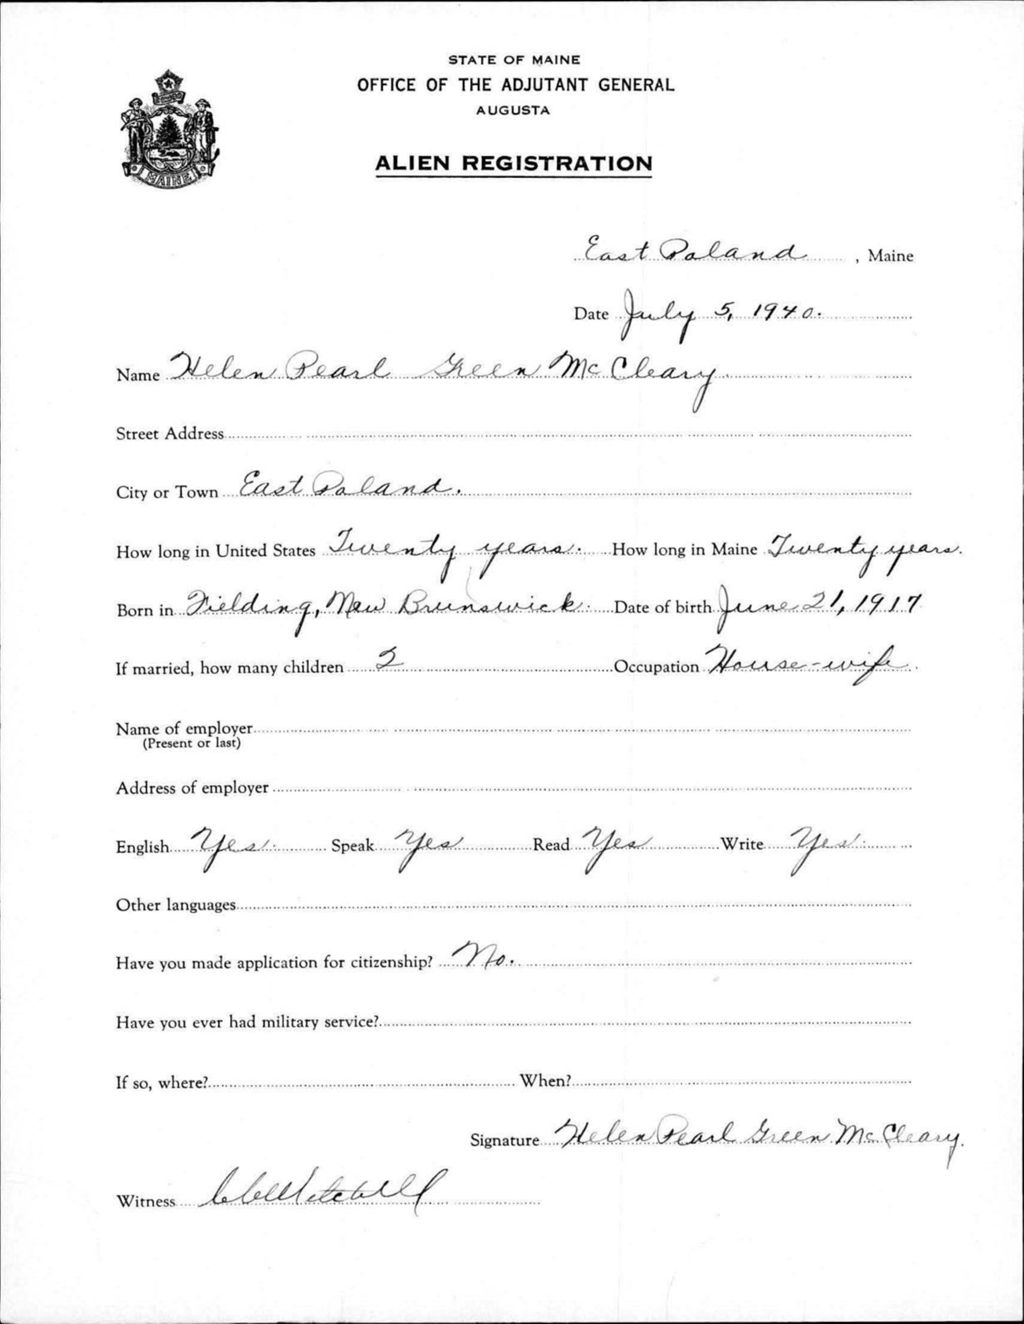 STATE OF MAINE
OFFICE OF THE ADJUTANT GENERAL
AUGUSTA
ALIEN REGISTRATION
MAINE
East Poland, Maine
Date July 5, 1940.
Name Helen Pearl Green McCleary
Street Address
City or Town East Poland.
How long in United States Twenty years. How long in Maine Twenty years.
Born in Fielding, New Brunswick Date of birth June 21, 1917
If married, how many children 2 Occupation House-wife
Name of employer
(Present or last)
Address of employer
English Yes. Speak Yes Read Yes Write Yes.
Other languages
Have you made application for citizenship? No.
Have you ever had military service?
If so, where? When?
Signature Helen Pearl Green McCleary.
Witness Mitchell